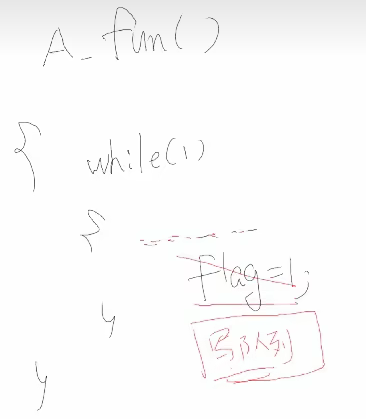 A_fun()
{ while(1)
{ ------
flag=1;
}
写队列
}